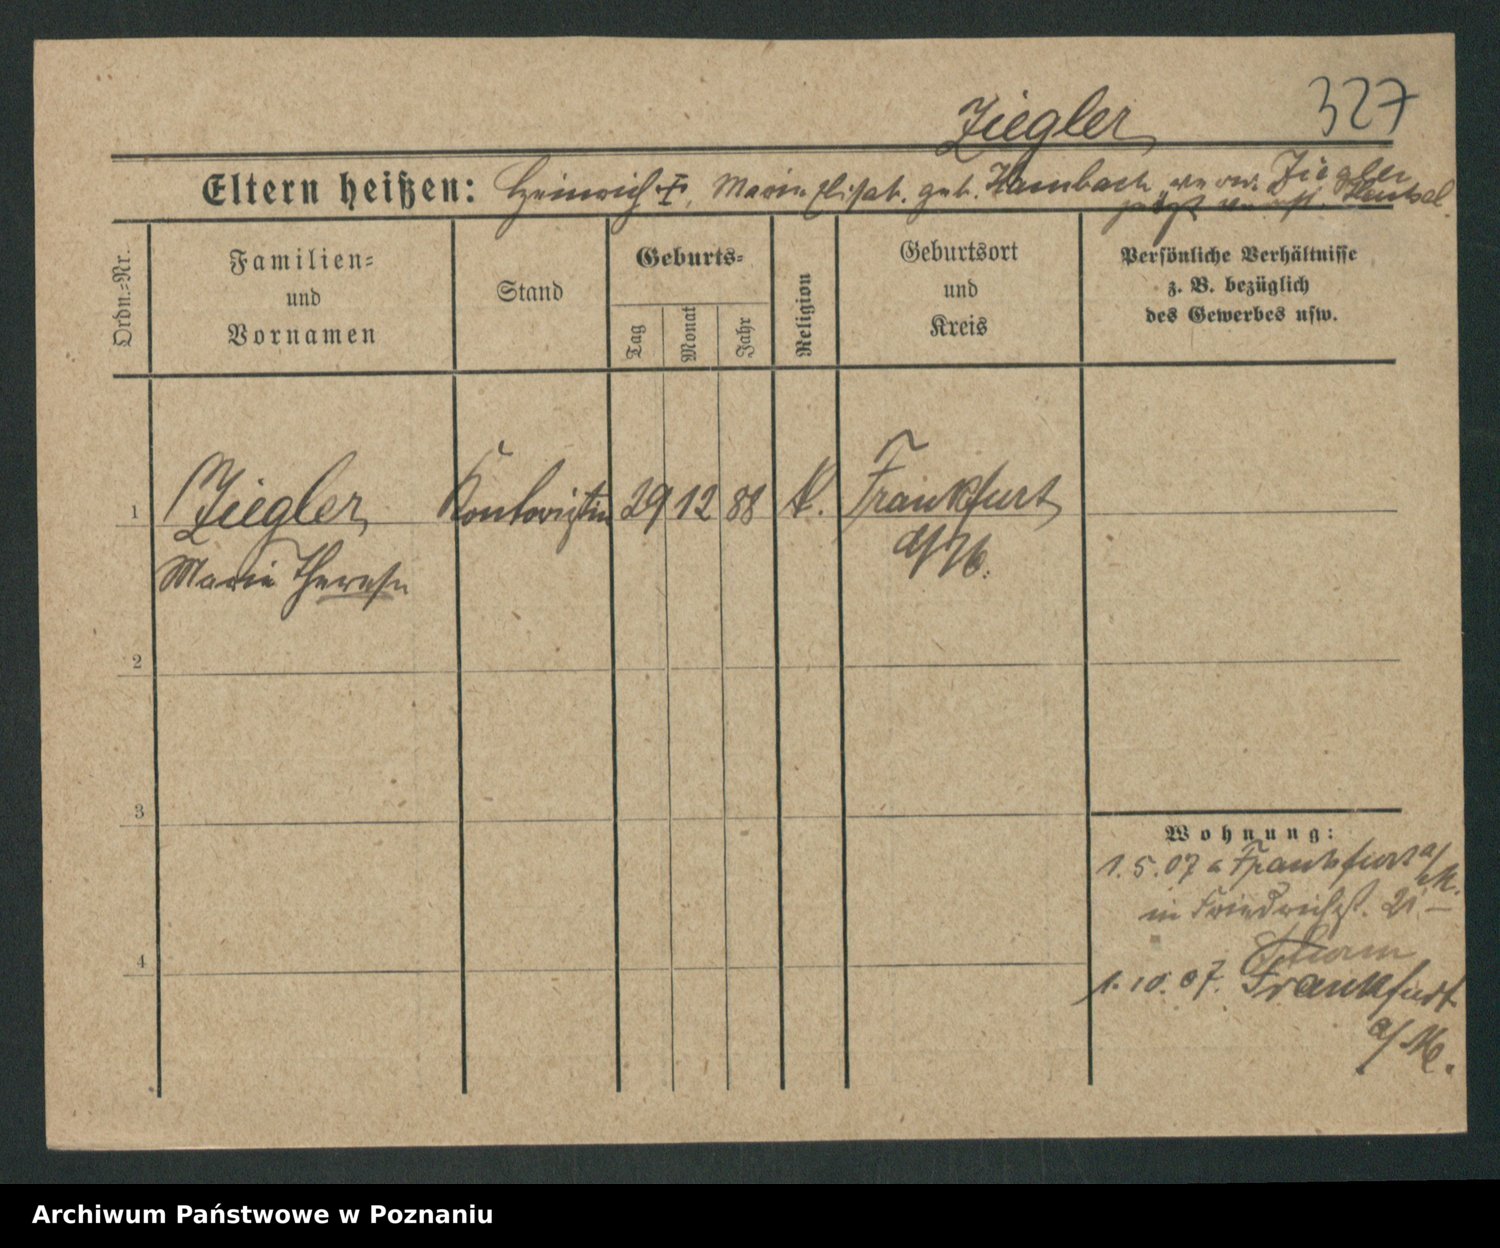 327
Ziegler
Eltern heißen: Heinrich †, Marie Elisab. geb. Hambach, verw. Ziegler
jetzt verehl. Hentsel.
Ordn.=Nr.
Familien=
und
Vornamen
Stand
Geburts=
Tag
Monat
Jahr
Religion
Geburtsort
und
Kreis
Persönliche Verhältnisse
z. B. bezüglich
des Gewerbes usw.
1 Ziegler Kontoristin 29 12 88 k. Frankfurt
Marie Therese a/M.
2
3
4
Wohnung:
1.5.07 a Frankfurt a/M.
in Friedrichst. 21
1.10.07. Frankfurt
a/M.
Archiwum Państwowe w Poznaniu